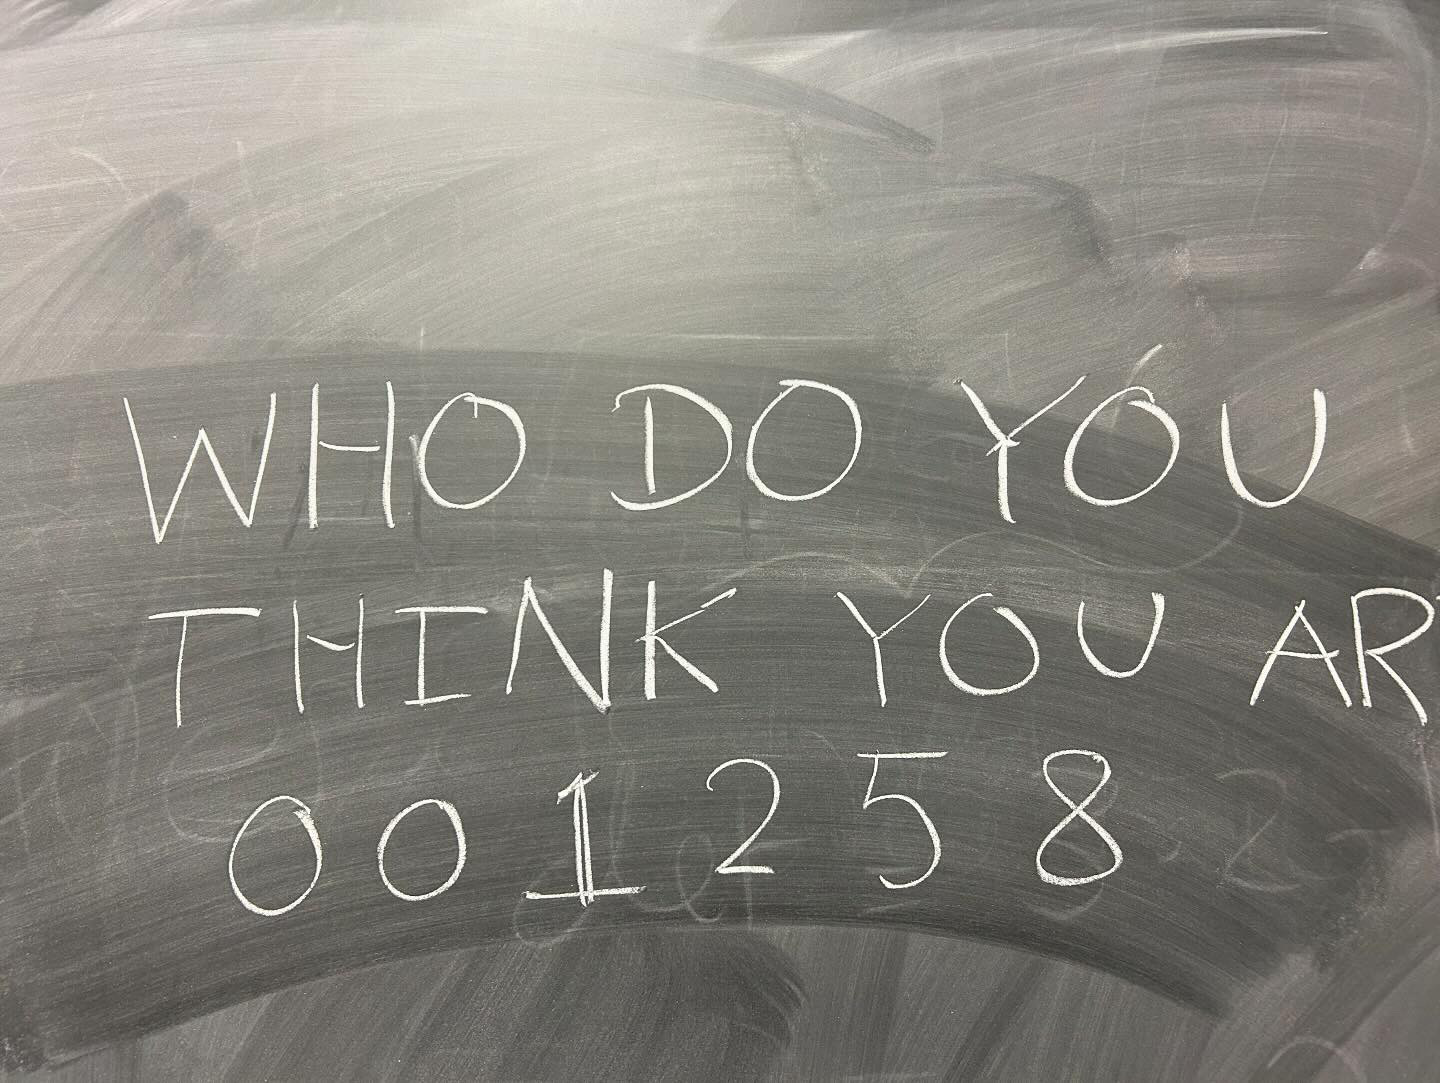 WHO DO YOU
THINK YOU AR
001258